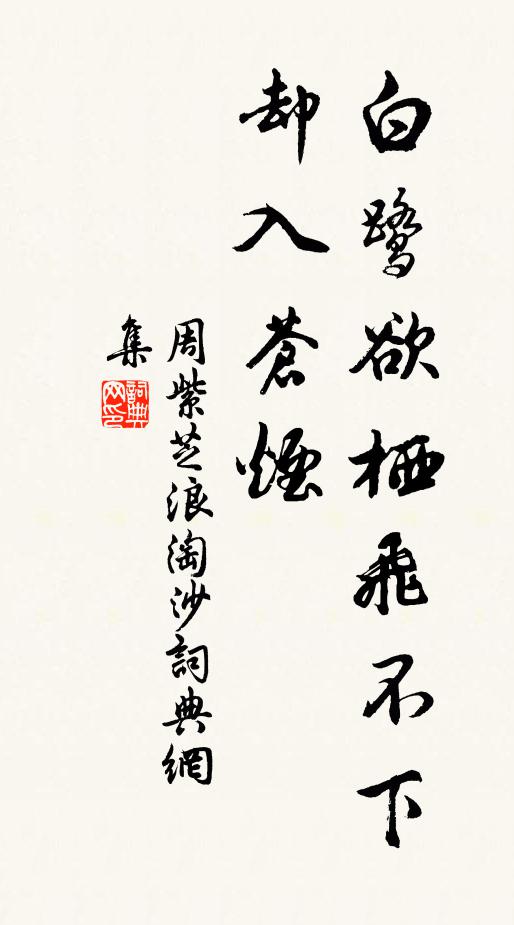 白鷺欲栖飛不下
却入蒼煙
周紫芝浪淘沙詞典網
集
詞典网印